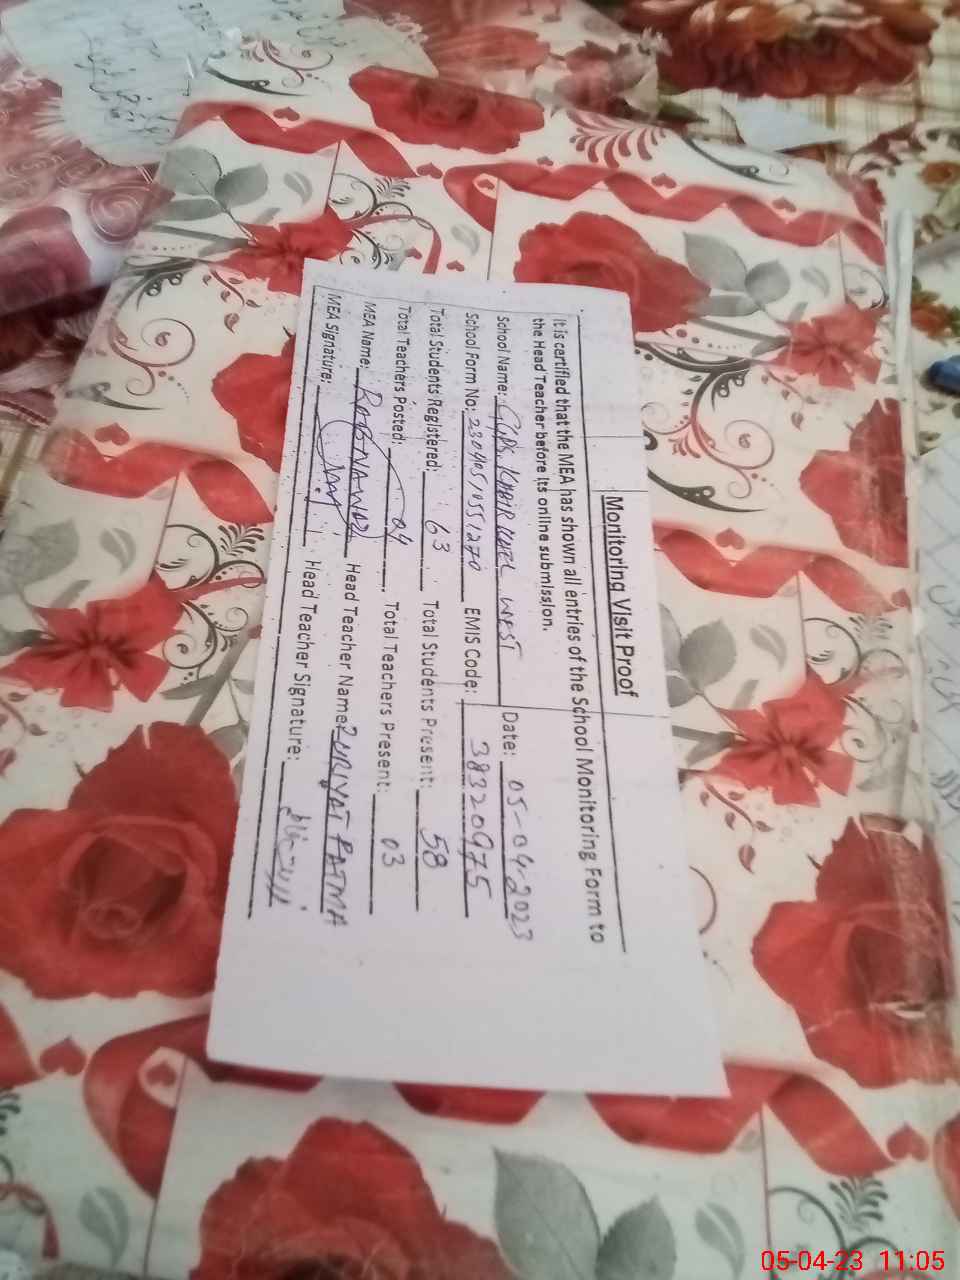 Monitoring Visit Proof
It is certified that the MEA has shown all entries of the School Monitoring Form to
the Head Teacher before its online submission.
School Name: GGPS KABIR WEST Date: 05-04-2023
School Form No: EMIS Code: 38320975
Total Students Registered: 63 Total Students Present: 58
Total Teachers Posted: 04 Total Teachers Present: 03
MEA Name: RAB NAWAZ Head Teacher Name: ZURIYAT FATMA
MEA Signature: Head Teacher Signature:
05-04-23 11:05